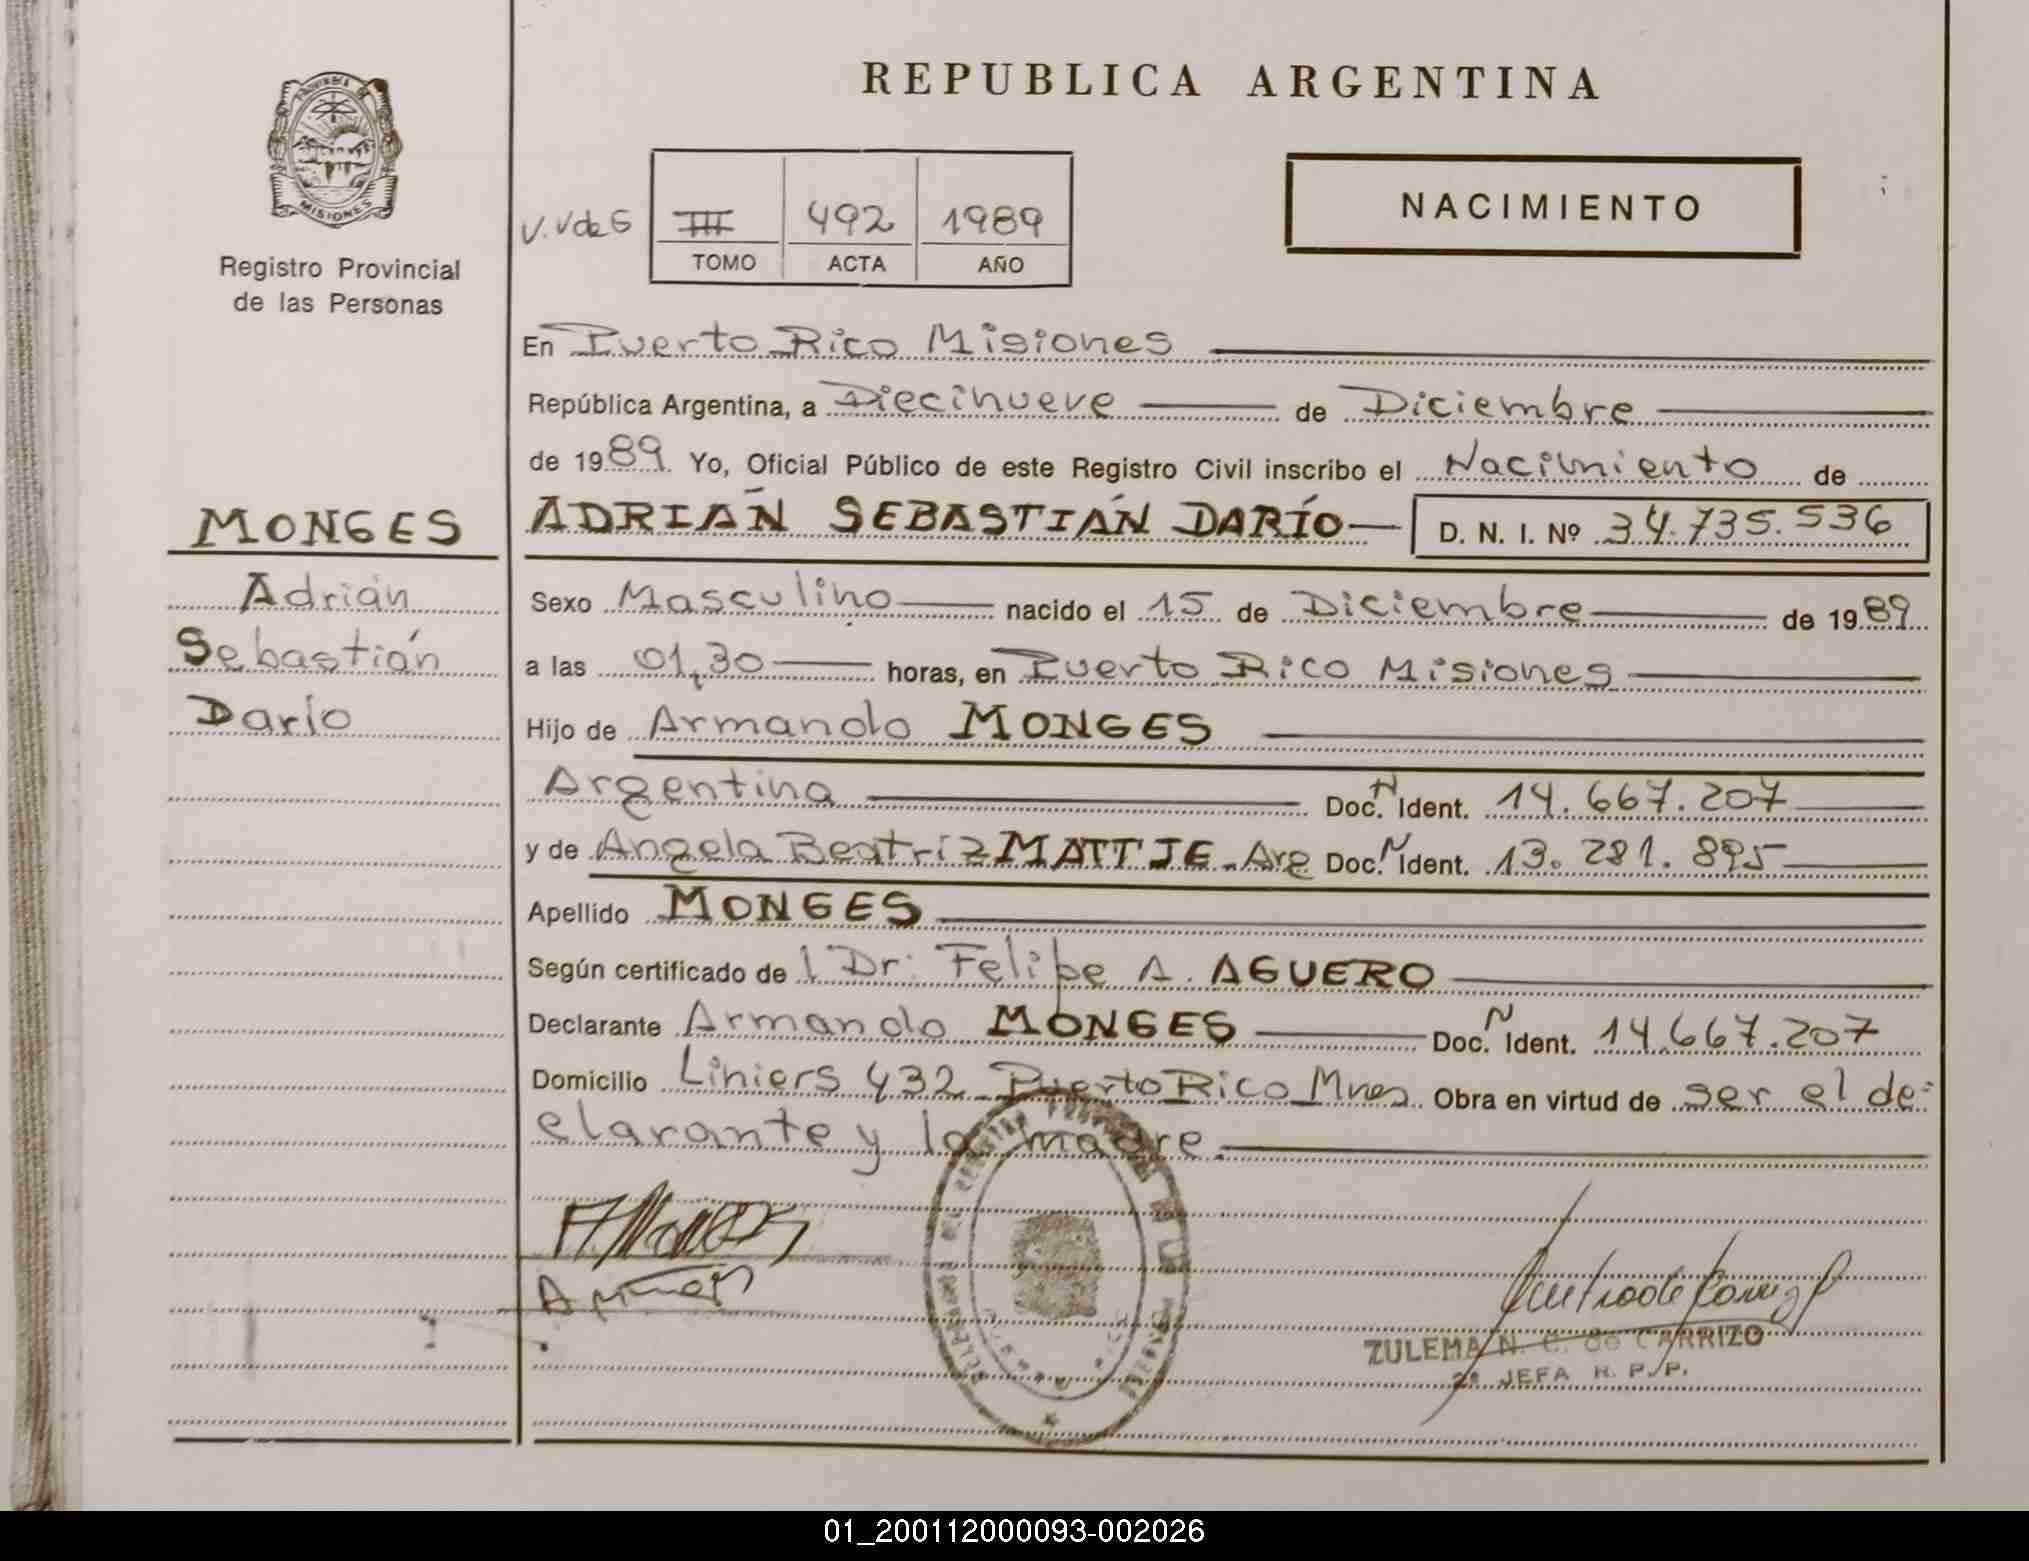 REPUBLICA ARGENTINA
PROVINCIA DE
MISIONES
Registro Provincial
de las Personas
V. V de G
III 492 1989
TOMO ACTA AÑO
NACIMIENTO
En Puerto Rico Misiones
República Argentina, a Diecinueve de Diciembre
de 1989. Yo, Oficial Público de este Registro Civil inscribo el Nacimiento de
MONGES
Adrián
Sebastián
Darío
ADRIÁN SEBASTIÁN DARÍO D. N. I. Nº 34.735.536
Sexo Masculino nacido el 15 de Diciembre de 1989
a las 01,30 horas, en Puerto Rico Misiones
Hijo de Armando MONGES
Argentina Doc. N Ident. 14.667.207
y de Angela Beatriz MATTJE. Arg Doc. N Ident. 13.281.895
Apellido MONGES
Según certificado de l Dr: Felipe A. AGUERO
Declarante Armando MONGES Doc. N Ident. 14.667.207
Domicilio Liniers 432 Puerto Rico Mnes Obra en virtud de ser el de=
clarante y la madre.
ZULEMA N. C. de CARRIZO
2ª JEFA R. P. P.
01_200112000093-002026